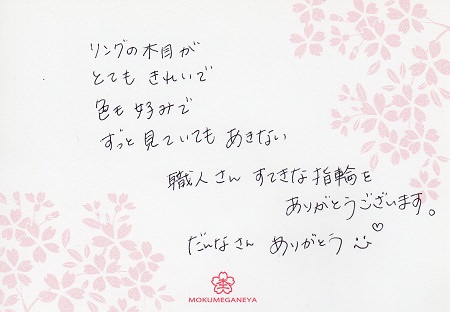 リングの木目が
とても きれいで
色も好みで
ずっと見ていても あきない
職人さん すてきな指輪を
ありがとうございます。
だんなさん ありがとう
MOKUMEGANEYA